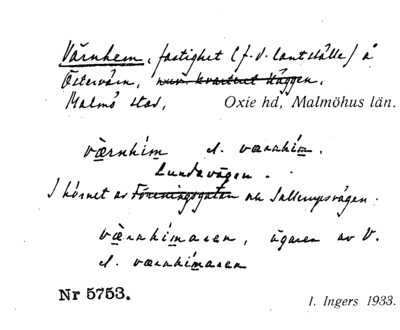 Värnhem, fastighet (f. d. lantställe) å
Östervärn, nuv. kvarteret Häggen,
Malmö stad, Oxie hd, Malmöhus län.
værnhím el. værnhím.
Lundavägen.
I hörnet av Föreningsgatan och Sallerupsvägen.
værnhímaren, ägaren av V.
el. værnhímaren
Nr 5753.
I. Ingers 1933.